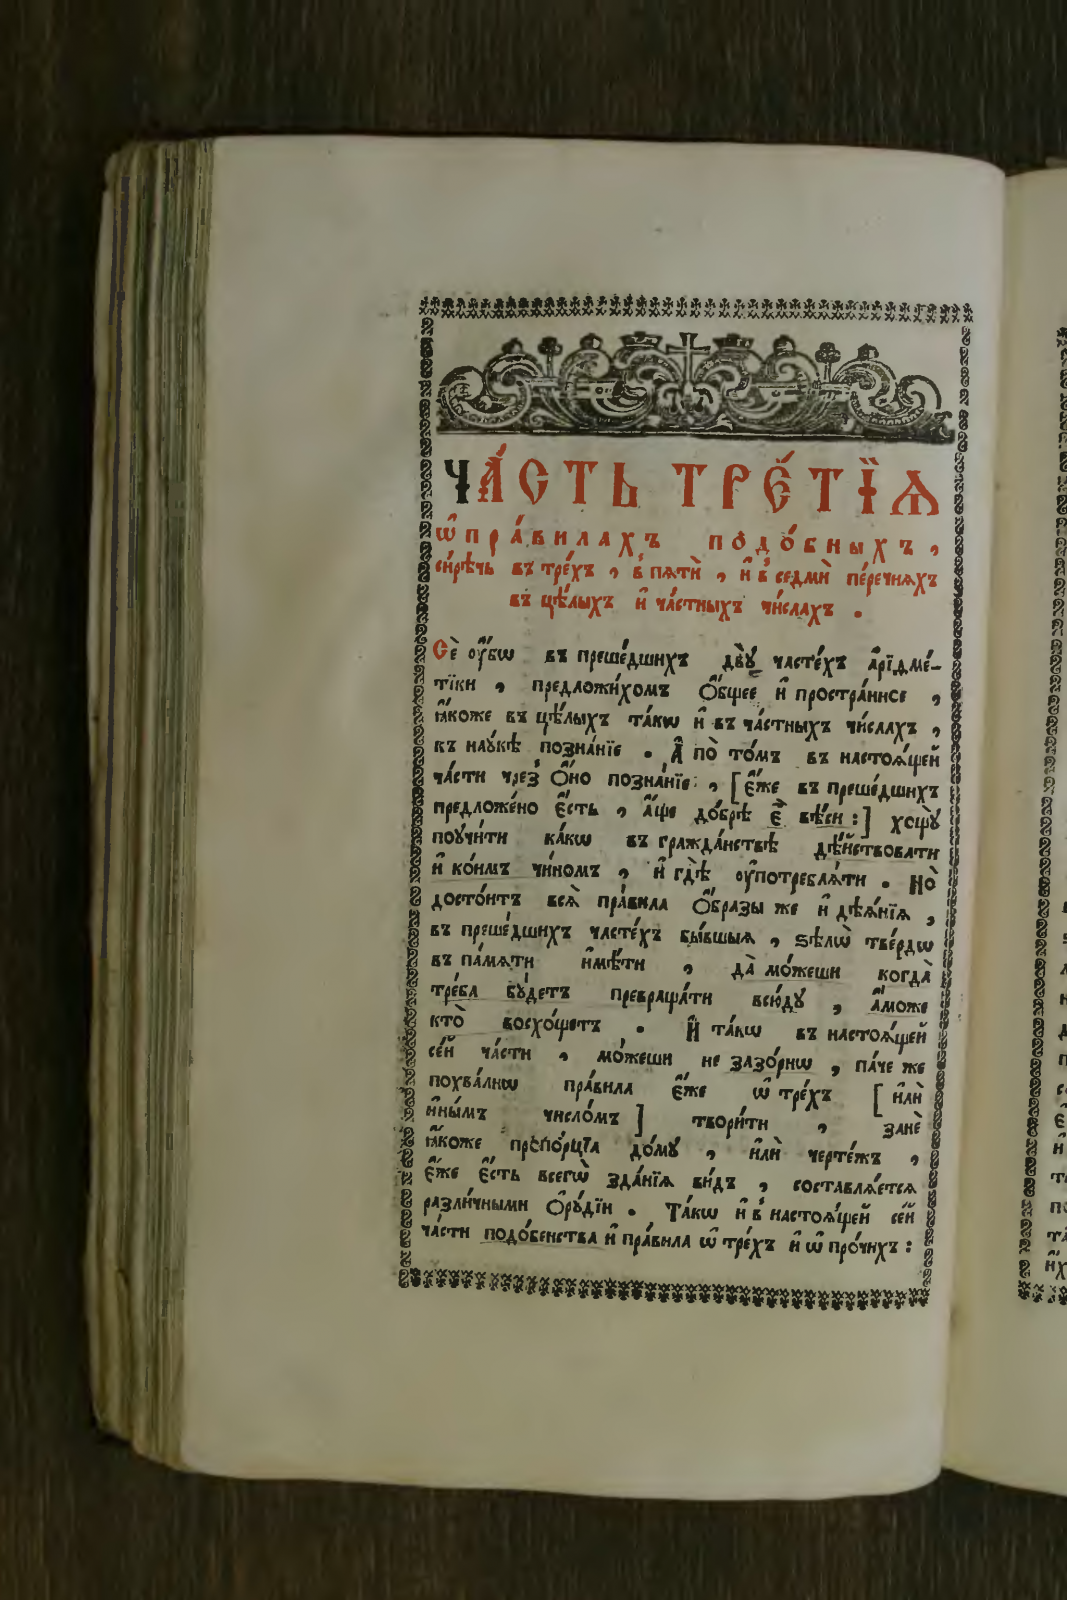 Ча́сть тре́тїѧ
ѡ҆ пра́вилахъ подо́бныхъ,
си́рѣчь въ тре́хъ, в̾ пѧтѝ, и҆ в̾ седмѝ пе́речнѧхъ
въ цѣ́лыхъ и҆ ча́стныхъ чи́слахъ.
Сѐ ᲂу҆́бѡ въ преше́дшихъ двꙋ̀ часте́хъ а҆рїѳме́-
тїки, предложи́хомъ ѻ҆́бщее и҆ простра́нное,
ꙗ҆́коже въ цѣ́лыхъ та́кѡ и҆ въ ча́стныхъ чи́слахъ,
къ наꙋ́кѣ позна́нїе. А҆ по̀ то́мъ въ настоѧ́щей
ча́сти чрез̾ ѻ҆́но позна́нїе, [є҆́же въ преше́дшихъ
предложе́но є҆́сть, а҆́ще до́брѣ є҆̀ вѣ́си:] хощꙋ̀
поꙋчи́ти ка́кѡ въ гражда́нствѣ дѣ́йствовати
и҆ ко́имъ чи́номъ, и҆ гдѣ̀ ᲂу҆потреблѧ́ти. Но̀
досто́итъ всѧ̀ пра́вила ѻ҆́бразы же и҆ дѣѧ́нїѧ,
въ преше́дшихъ часте́хъ бы́вшыѧ, ѕѣлѡ̀ тве́рдѡ
въ па́мѧти и҆мѣ́ти, да̀ мо́жеши когда̀
тре́ба бꙋ́детъ превраща́ти всю́дꙋ, а҆́може
кто̀ восхо́щетъ. И҆ та́кѡ въ настоѧ́щей
се́й ча́сти, мо́жеши не зазо́рнѡ, па́че же
похва́лнѡ пра́вила є҆́же ѡ҆ тре́хъ [и҆лѝ
и҆ны́мъ число́мъ] твори́ти, занѐ
ꙗ҆́коже пропо́рцїа до́мꙋ, и҆лѝ черте́жъ,
є҆́же є҆́сть всегѡ̀ зда́нїѧ ви́дъ, составлѧ́етсѧ
разли́чными ѻ҆рꙋ́дїи. Та́кѡ и҆ в̾ настоѧ́щей се́й
ча́сти подо́бенства и҆ пра́вила ѡ҆ тре́хъ и҆ ѡ҆ про́чихъ: